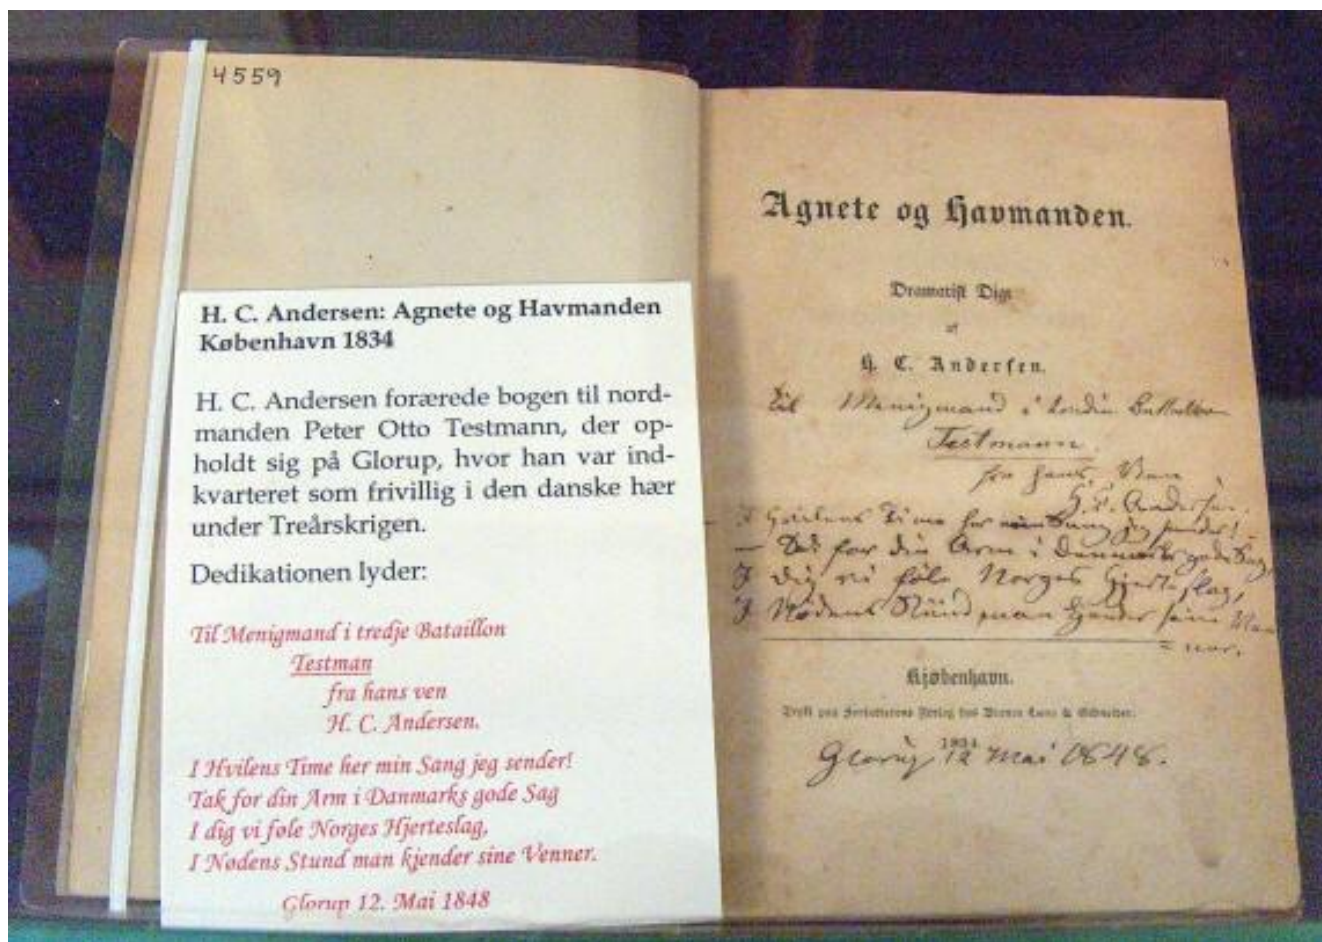 4559
H. C. Andersen: Agnete og Havmanden
København 1834
H. C. Andersen forærede bogen til nord-
manden Peter Otto Testmann, der op-
holdt sig på Glorup, hvor han var ind-
kvarteret som frivillig i den danske hær
under Treårskrigen.
Dedikationen lyder:
Til Menigmand i tredje Bataillon
Testman
fra hans ven
H. C. Andersen.
I Hvilens Time her min Sang jeg sender!
Tak for din Arm i Danmarks gode Sag
I dig vi føle Norges Hjerteslag,
I Nødens Stund man kjender sine Venner.
Glorup 12. Mai 1848
Agnete og Havmanden.
Dramatisk Digt
af
H. C. Andersen.
Til Menigmand i tredie Bataillon
Testmann.
fra hans Ven
H. C. Andersen.
I Hvilens Time her min Sang jeg sender!
Tak for din Arm i Danmarks gode Sag,
I dig vi føle Norges Hjerteslag,
I Nødens Stund man kjender sine Ven
= ner.
Kjøbenhavn.
Trykt paa Forfatterens Forlag hos Bianco Luno & Schneider.
1834
Glorup 12 Mai 1848.